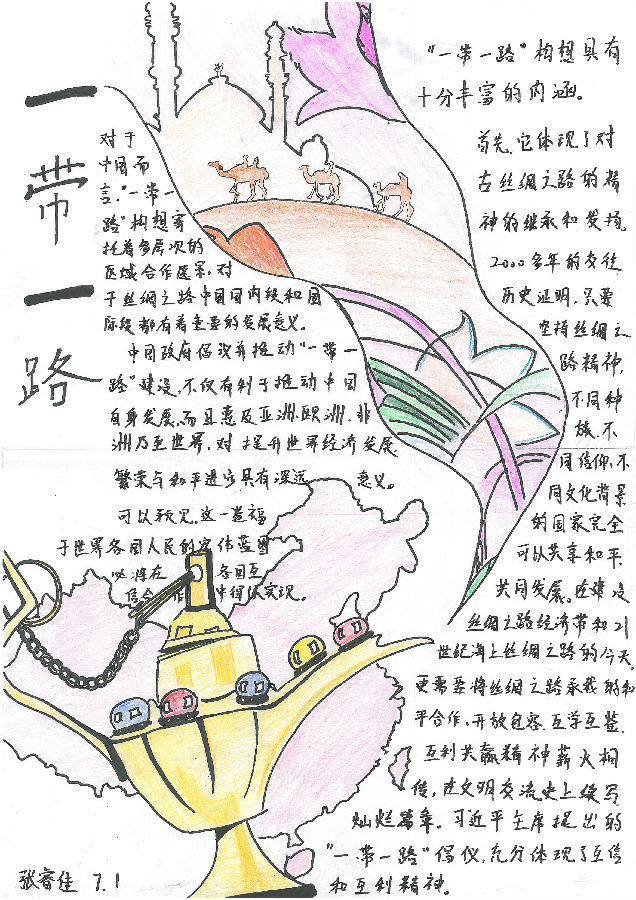 一带一路
对于
中国而
言，“一带一
路”构想寄
托着多层次的
区域合作愿景，对
于丝绸之路中国国内段和国
际段都有着重要的发展意义。
中国政府倡议并推动“一带一
路”建设，不仅有利于推动中国
自身发展，而且惠及亚洲、欧洲、非
洲乃至世界，对提升世界经济发展
繁荣与和平进步具有深远意义。
可以预见，这一造福
于世界各国人民的宏伟蓝图
必将在 各国互
信合作 中得以实现。
“一带一路”构想具有
十分丰富的内涵。
首先，它体现了对
古丝绸之路的精
神的继承和发扬。
2000多年的交往
历史证明，只要
坚持丝绸之
路精神，
不同种
族、不
同信仰、不
同文化背景
的国家完全
可以共享和平，
共同发展。在建设
丝绸之路经济带和21
世纪海上丝绸之路的今天，
更需要将丝绸之路承载的和
平合作、开放包容、互学互鉴、
互利共赢精神薪火相
传，在文明交流史上续写
灿烂篇章。习近平主席提出的
“一带一路”倡议，充分体现了互信
和互利精神。
张睿佳 7.1